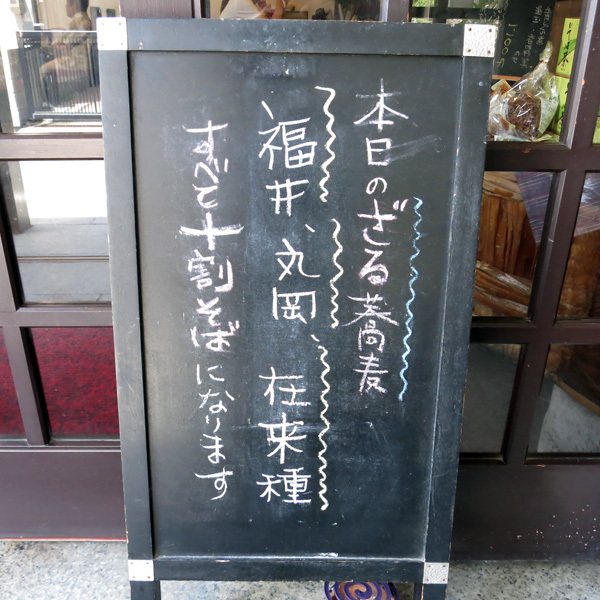 本日のざる蕎麦
福井、丸岡、在来種
すべて十割そばになります